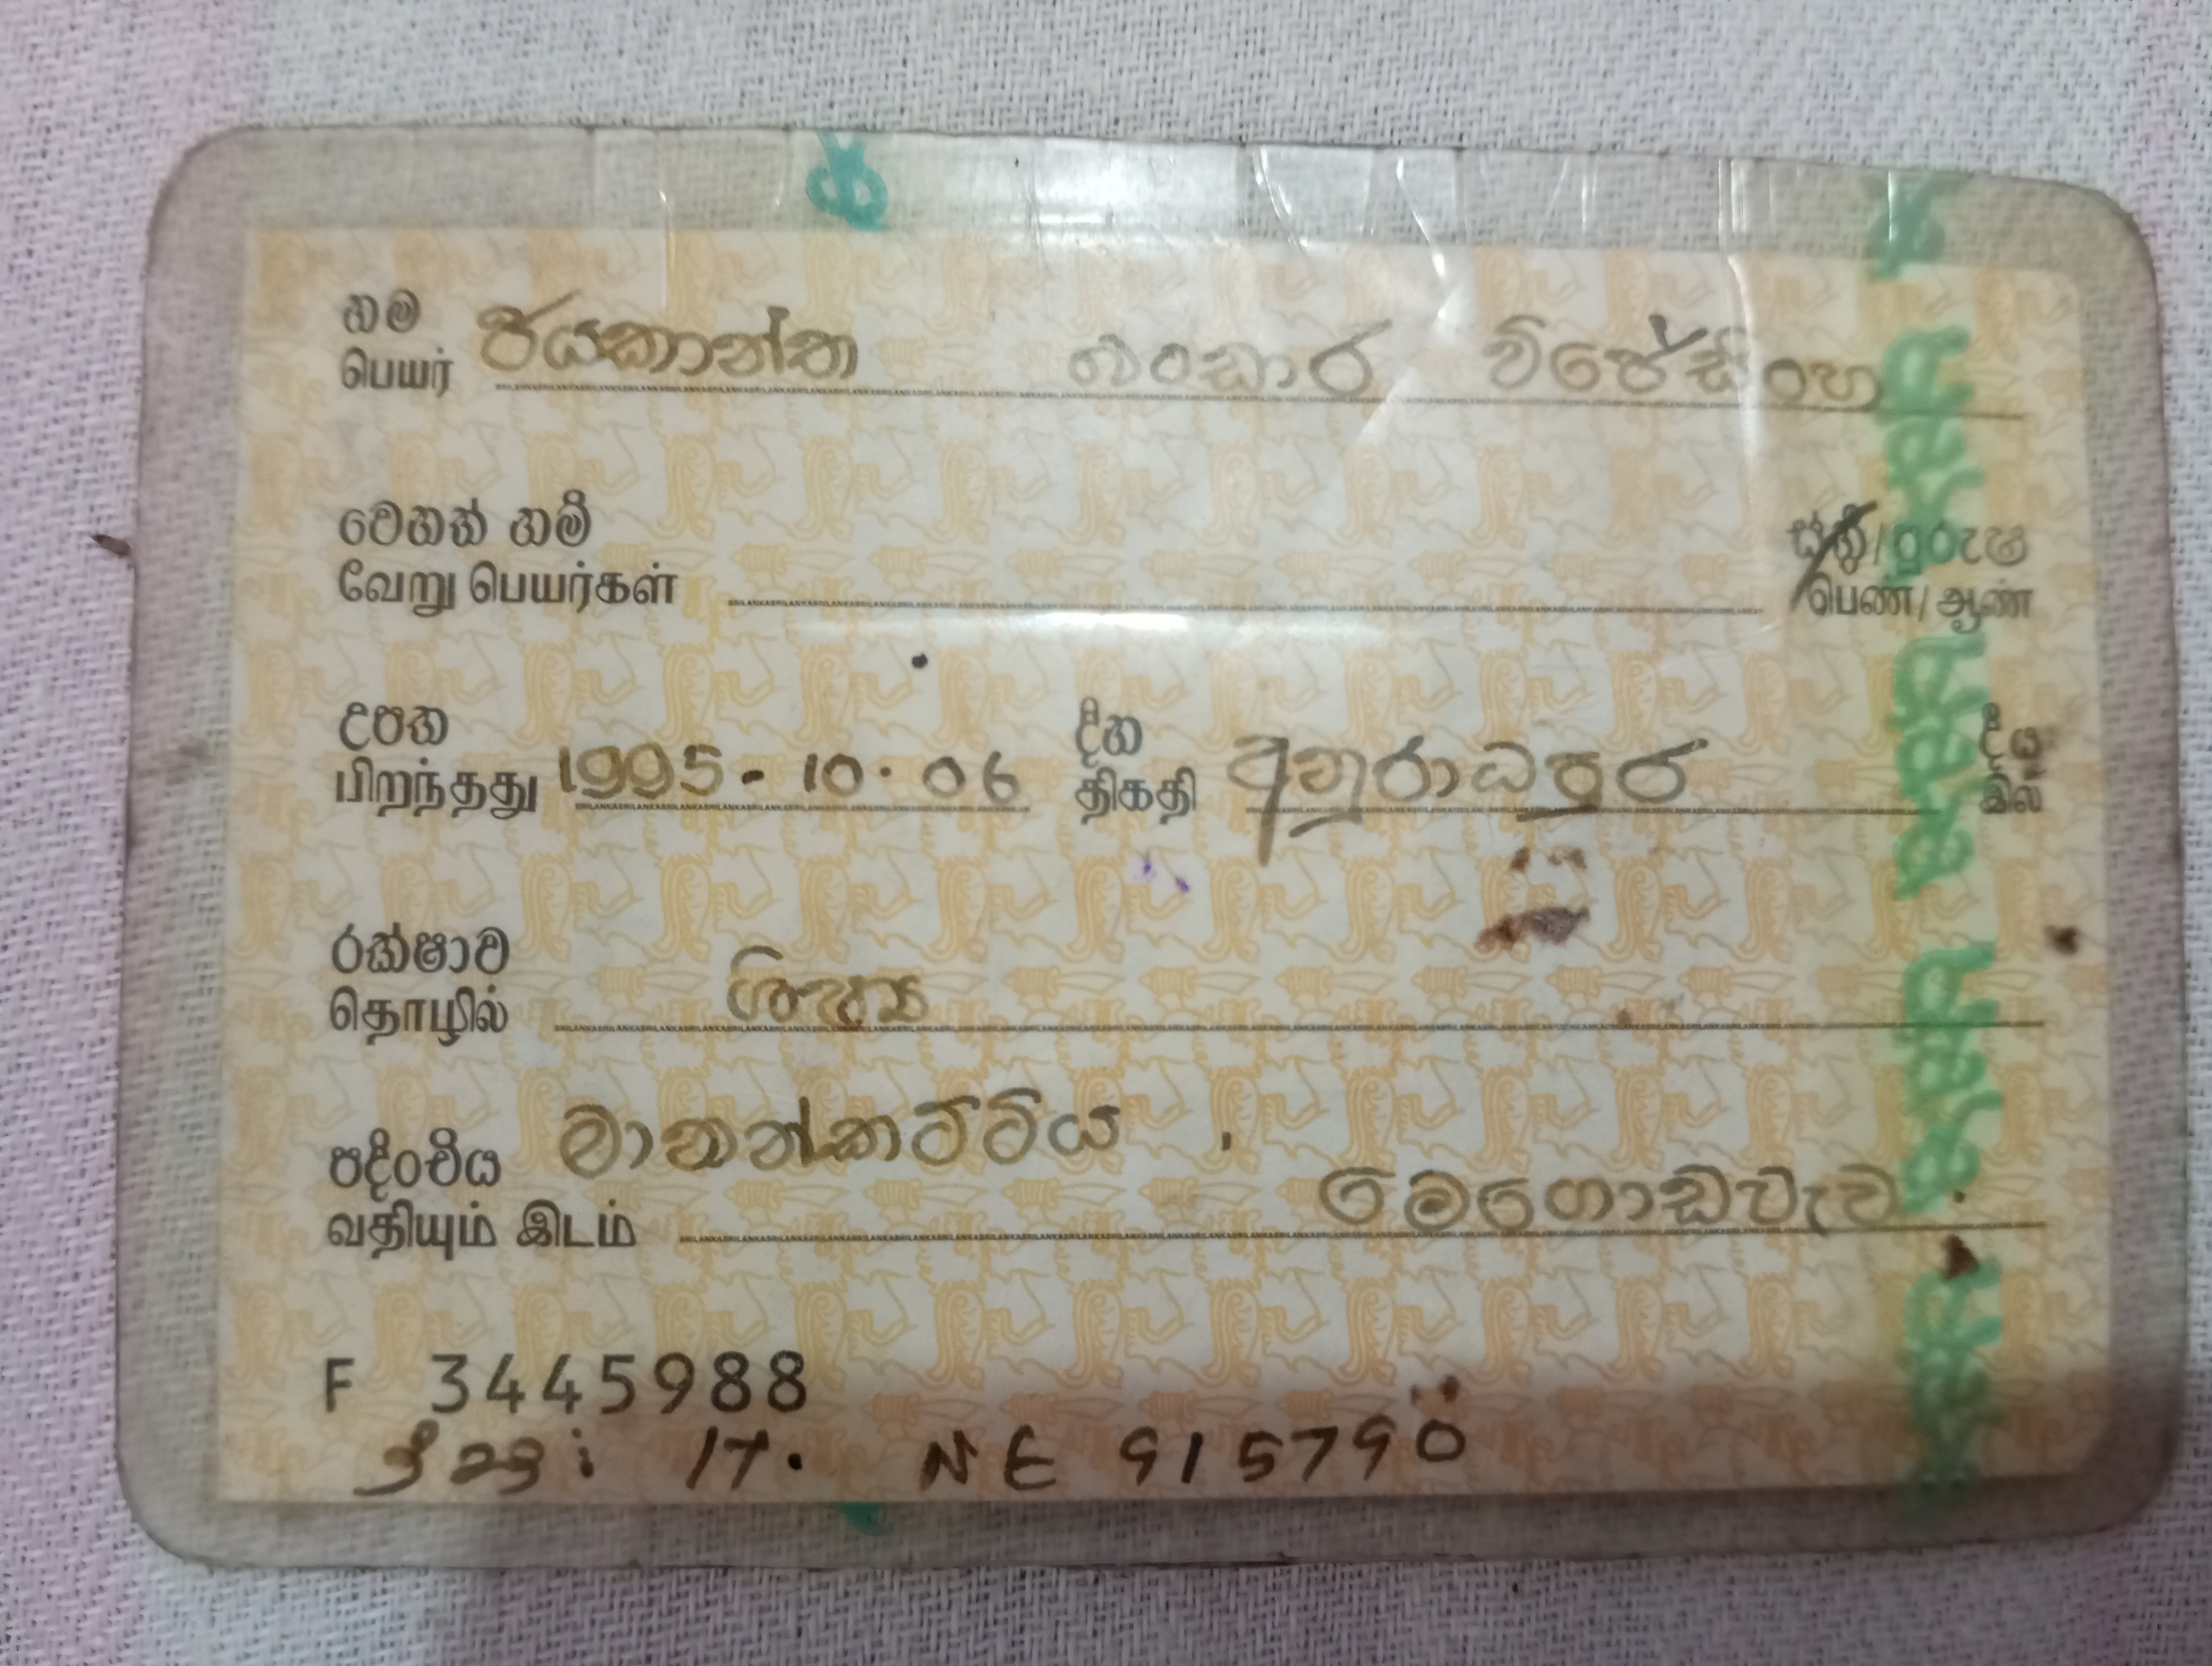 නම ජයකාන්ත බංඩාර විජේසිංහ
பெயர்
වෙනත් නම් ස්ත්‍රී/පුරුෂ
வேறு பெயர்கள் பெண்/ஆண்
උපන 1995-10.06 දින අනුරාධපුර දීය
பிறந்தது திகதி இல்
රක්ෂාව ශිෂ්‍ය
தொழில்
පදිංචිය මානන්කට්ටිය .
வதியும் இடம் මෙගොඩවැව .
F 3445988
17. NE 915790